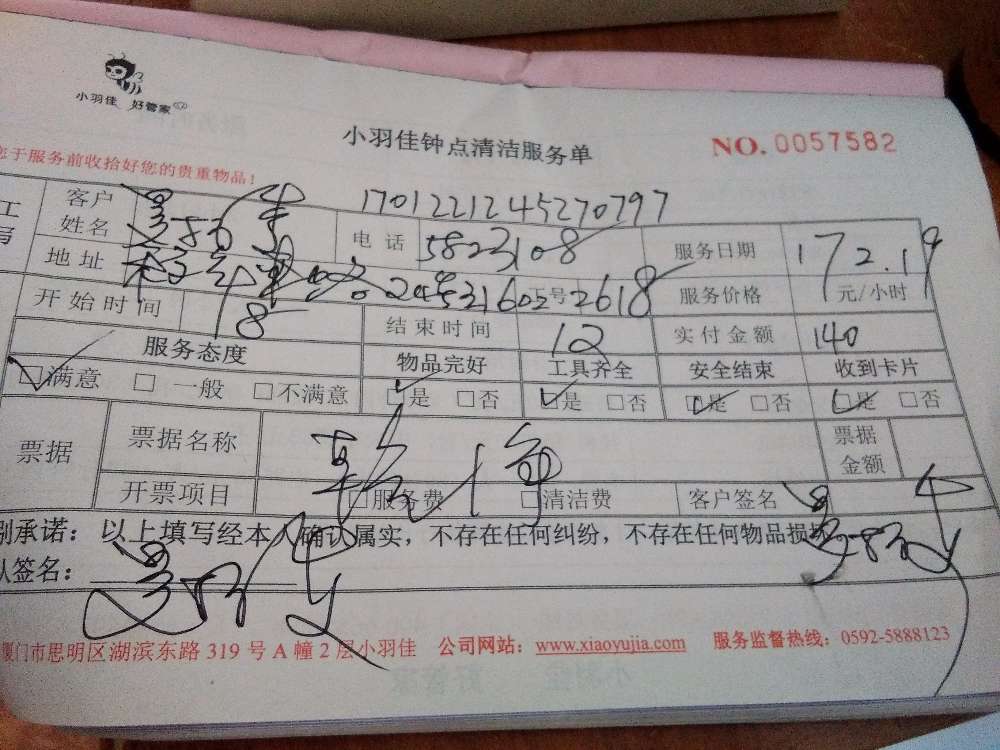 小羽佳 好管家
小羽佳钟点清洁服务单
NO. 0057582
您于服务前收拾好您的贵重物品！
1701221245270797
客户姓名 电话 5823108 服务日期 172.19
地址 2618 服务价格 元/小时
开始时间 8 结束时间 12 实付金额 140
服务态度 物品完好 工具齐全 安全结束 收到卡片
☑满意 □一般 □不满意 ☑是 □否 ☑是 □否 ☑是 □否 ☑是 □否
票据 票据名称 票据金额
开票项目 □服务费 □清洁费 客户签名
承诺：以上填写经本人确认属实，不存在任何纠纷，不存在任何物品损
签名：
厦门市思明区湖滨东路 319 号 A 幢 2 层小羽佳 公司网站：www.xiaoyujia.com 服务监督热线：0592-5888123